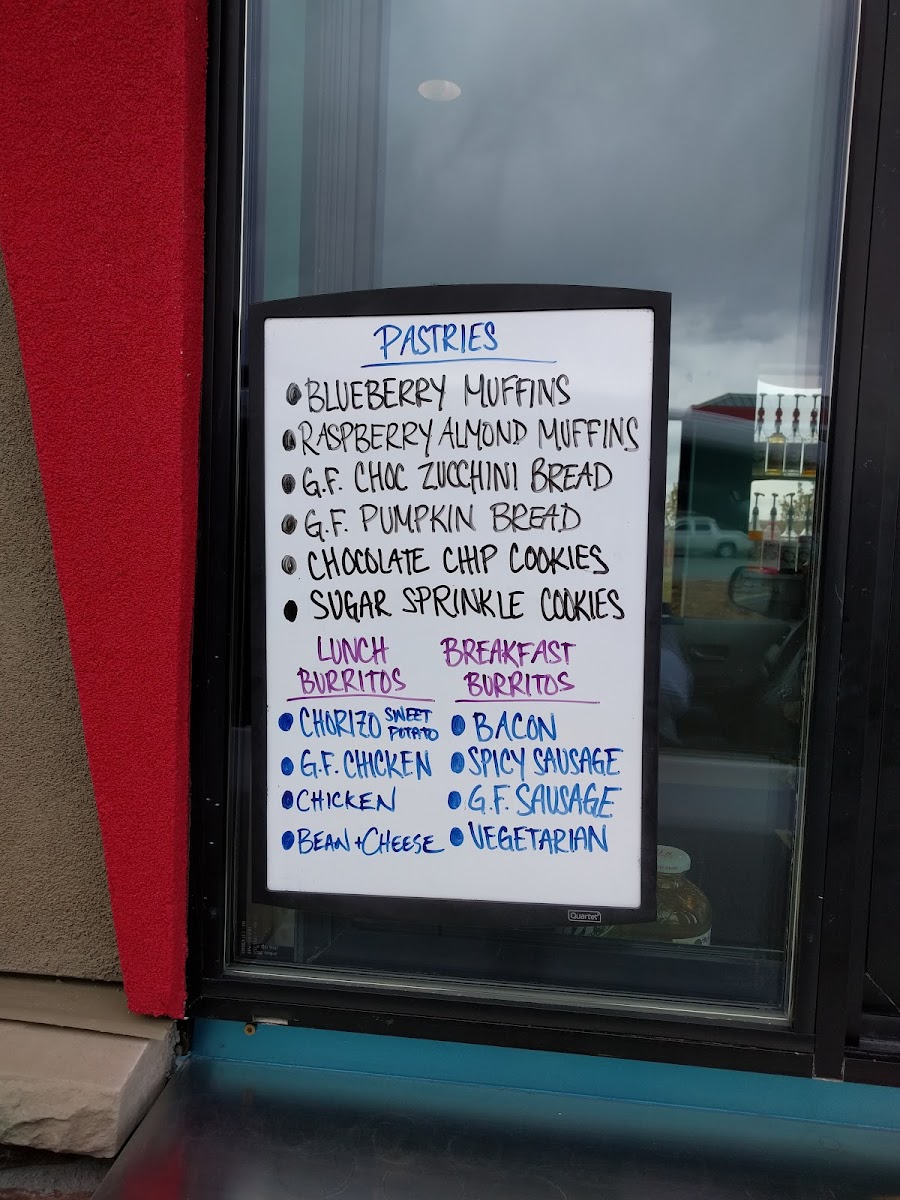 PASTRIES
BLUEBERRY MUFFINS
RASPBERRY ALMOND MUFFINS
G.F. CHOC ZUCCHINI BREAD
G.F. PUMPKIN BREAD
CHOCOLATE CHIP COOKIES
SUGAR SPRINKLE COOKIES
LUNCH
BURRITOS
CHORIZO SWEET POTATO
G.F. CHICKEN
CHICKEN
BEAN + CHEESE
BREAKFAST
BURRITOS
BACON
SPICY SAUSAGE
G.F. SAUSAGE
VEGETARIAN
Quartet